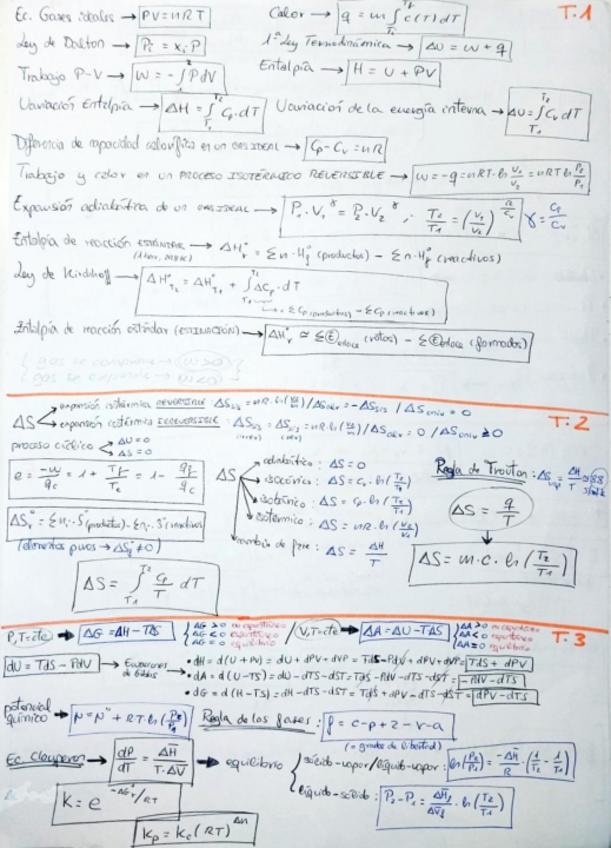 T.1
Ec. Gases ideales → PV = nRT
Calor → q = m ∫ c(T) dT
Ley de Dalton → Pi = xi · P
1ª Ley Termodinámica → ΔU = w + q
Trabajo P-V → W = - ∫₁² P dV
Entalpía → H = U + PV
Variación Entalpía → ΔH = ∫_T1^T2 Cp · dT
Variación de la energía interna → ΔU = ∫_T1^T2 Cv dT
Diferencia de capacidad calorífica en un GAS IDEAL → Cp - Cv = nR
Trabajo y calor en un PROCESO ISOTÉRMICO REVERSIBLE → w = -q = nRT · ln V1/V2 = nRT ln P2/P1
Expansión adiabática de un GAS IDEAL → P1 · V1^γ = P2 · V2^γ ; T2/T1 = (V1/V2)^R/Cv γ = Cp/Cv
Entalpía de reacción ESTÁNDAR → ΔHr° = Σn · Hf° (productos) - Σn · Hf° (reactivos)
(1 bar, 298K)
Ley de Kirchhoff → ΔH°T2 = ΔH°T1 + ∫_T1^T2 ΔCp · dT
→ ΣCp (productos) - ΣCp (reactivos)
Entalpía de reacción estándar (ESTIMACIÓN) → ΔHr° ≃ ΣE enlace (rotos) - ΣE enlace (formados)
gas se comprime → w>0
gas se expande → w<0
T.2
ΔS
expansión isotérmica REVERSIBLE : ΔSsis = nR · ln(V2/V1) / ΔSalr = -ΔSsis / ΔSuniv = 0
expansión isotérmica IRREVERSIBLE : ΔSsis = ΔSsis = nR · ln(V2/V1) / ΔSalr = 0 / ΔSuniv ≥ 0
(irrev) (rev)
proceso cíclico ΔU = 0
ΔS = 0
e = -w/qc = 1 + Tf/Tc = 1 - qf/qc
ΔSr° = Σni · S°(productos) - Σni · S°(reactivos)
(elementos puros → ΔSf° ≠ 0)
ΔS = ∫_T1^T2 Cp/T dT
ΔS
adiabático : ΔS = 0
isocórico : ΔS = Cv · ln(T2/T1)
isobárico : ΔS = Cp · ln(T2/T1)
isotérmico : ΔS = nR · ln(V2/V1)
cambio de fase : ΔS = ΔH/T
Regla de Trouton : ΔSvap = ΔH/T ≈ 88
ΔS = q/T
ΔS = m · c · ln(T2/T1)
T.3
P, T = cte → ΔG = ΔH - TΔS
ΔG > 0 no espontáneo
ΔG < 0 espontáneo
ΔG = 0 equilibrio
/ V, T = cte → ΔA = ΔU - TΔS
ΔA > 0 no espontáneo
ΔA < 0 espontáneo
ΔA = 0 equilibrio
dU = TdS - PdV → Ecuaciones de Gibbs
• dH = d(U + PV) = dU + dPV + dVP = TdS - PdV + dPV + dVP = TdS + dPV
• dA = d(U - TS) = dU - dTS - dST = TdS - PdV - dTS - dST = -PdV - dTS
• dG = d(H - TS) = dH - dTS - dST = TdS + dPV - dTS - dST = dPV - dTS
potencial químico → μ = μ° + RT · ln(P2/P1)
Regla de las fases : f = c - p + 2 - r - a
(= grados de libertad)
Ec. Clapeyron → dP/dT = ΔH/T·ΔV → equilibrio
sólido-vapor/líquido-vapor : ln(P2/P1) = -ΔH/R · (1/T2 - 1/T1)
líquido-sólido : P2 - P1 = ΔHf/ΔVf · ln(T2/T1)
K = e^-ΔGr°/RT
Kp = Kc (RT)^Δn